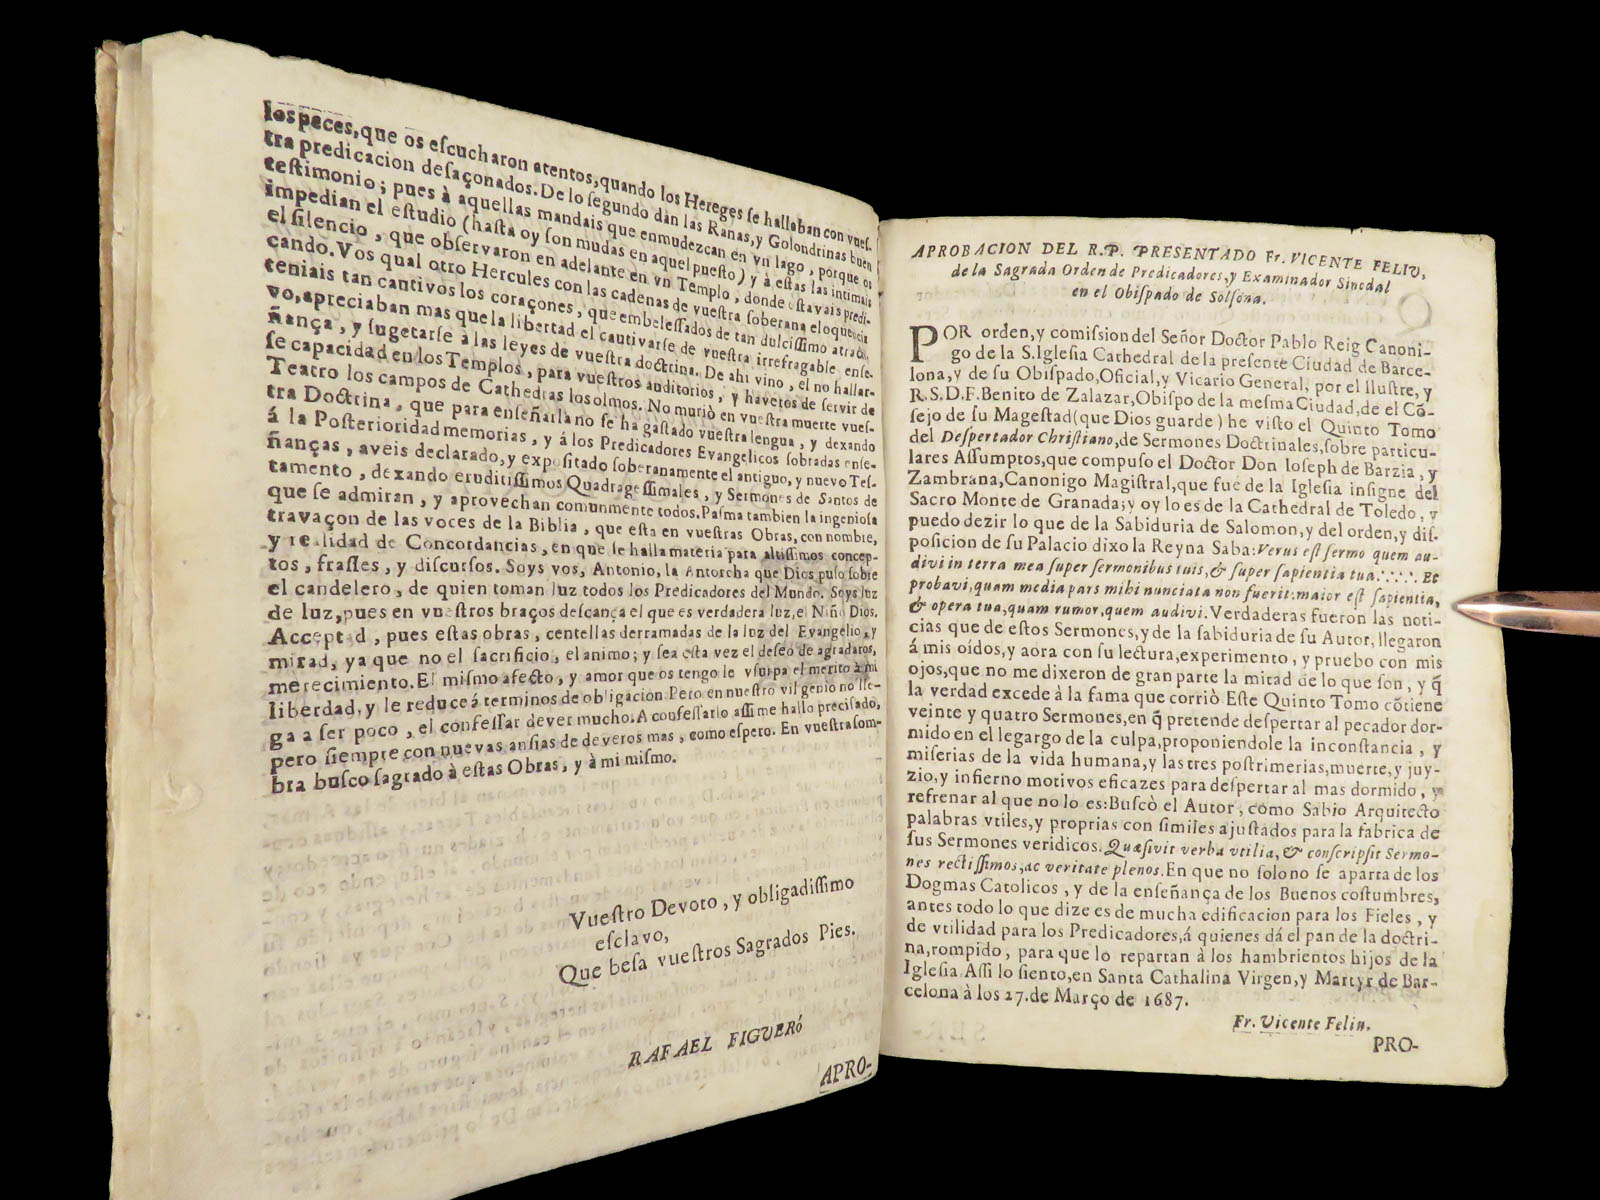 los peces, que os eſcucharon atentos, quando los Hereges ſe hallaban con vueſ-
tra predicacion deſaçonados. De lo ſegundo dàn las Ranas, y Golondrinas buen
teſtimonio; pues à aquellas mandais que enmudezcan en vn lago, porque os
impedian el eſtudio (haſta oy ſon mudas en aquel pueſto) y à eſtas las intimais
el ſilencio, que obſervaron en adelante en vn Templo, donde eſtavais predi-
cando. Vos qual otro Hercules con las cadenas de vueſtra ſoberana eloquencia
teniais tan cautivos los coraçones, que embeleſſados de tan dulciſſimo atracti-
vo, apreciaban mas que la libertad el cautivarſe de vueſtra irrefragable enſe-
ñança, y ſugetarſe à las leyes de vueſtra doctrina. De ahi vino, el no hallar-
ſe capacidad en los Templos, para vueſtros auditorios, y haveros de ſervir de
Teatro los campos de Cathedras los olmos. No muriò en vueſtra muerte vueſ-
tra Doctrina, que para enſeñarla no ſe ha gaſtado vueſtra lengua, y dexando
á la Poſterioridad memorias, y á los Predicadores Evangelicos ſobradas enſe-
ñanças, aveis declarado, y expoſitado ſoberanamente el antiguo, y nuevo Teſ-
tamento, dexando eruditiſſimos Quadrageſſimales, y Sermones de Santos de
que ſe admiran, y aprovechan comunmente todos. Paſma tambien la ingenioſa
travaçon de las voces de la Biblia, que eſta en vueſtras Obras, con nombre,
y realidad de Concordancias, en que ſe halla materia para altiſſimos concep-
tos, fraſſes, y diſcurſos. Soys vos, Antonio, la Antorcha que Dios puſo ſobre
el candelero, de quien toman luz todos los Predicadores del Mundo. Soys luz
de luz, pues en vueſtros braços deſcança el que es verdadera luz, el Niño Dios.
Acceptad, pues eſtas obras, centellas derramadas de la luz del Evangelio, y
mirad, ya que no el ſacrificio, el animo; y ſea eſta vez el deſeo de agradaros,
merecimiento. El miſmo afecto, y amor que os tengo le vſurpa el merito à mi
liberdad, y le reduce á terminos de obligación. Pero en nueſtro vil genio no lle-
ga a ſer poco, el confeſſar dever mucho. A confeſſarlo aſſi me hallo preciſado,
pero ſiempre con nuevas anſias de deveros mas, como eſpero. En vueſtra ſom-
bra buſco ſagrado à eſtas Obras, y à mi miſmo.
Vueſtro Devoto, y obligadiſſimo
eſclavo,
Que beſa vueſtros Sagrados Pies.
RAFAEL FIGUERó
APRO-
APROBACION DEL R.P. PRESENTADO Fr. VICENTE FELIV,
de la Sagrada Orden de Predicadores, y Examinador Sinodal
en el Obiſpado de Solſona.
POR orden, y comiſsion del Señor Doctor Pablo Reig Canoni-
go de la S. Igleſia Cathedral de la preſente Ciudad de Barce-
lona, y de ſu Obiſpado, Oficial, y Vicario General, por el Iluſtre, y
R.S.D.F. Benito de Zalazar, Obiſpo de la meſma Ciudad, de el Cõ-
ſejo de ſu Mageſtad (que Dios guarde) he viſto el Quinto Tomo
del Deſpertador Chriſtiano, de Sermones Doctrinales, ſobre particu-
lares Aſſumptos, que compuſo el Doctor Don Ioſeph de Barzia, y
Zambrana, Canonigo Magiſtral, que fue de la Igleſia inſigne del
Sacro Monte de Granada; y oy lo es de la Cathedral de Toledo, y
puedo dezir lo que de la Sabiduria de Salomon, y del orden, y diſ-
poſicion de ſu Palacio dixo la Reyna Saba: Verus eſt ſermo quem au-
divi in terra mea ſuper ſermonibus tuis, & ſuper ſapientia tua∴∵∴ Et
probavi, quam media pars mihi nunciata non fuerit: maior eſt ſapientia,
& opera tua, quam rumor, quem audivi. Verdaderas fueron las noti-
cias que de eſtos Sermones, y de la ſabiduria de ſu Autor, llegaron
á mis oídos, y aora con ſu lectura, experimento, y pruebo con mis
ojos, que no me dixeron de gran parte la mitad de lo que ſon, y q̃
la verdad excede à la fama que corriò Eſte Quinto Tomo cõtiene
veinte y quatro Sermones, en q̃ pretende deſpertar al pecador dor-
mido en el legargo de la culpa, proponiendole la inconſtancia, y
miſerias de la vida humana, y las tres poſtrimerias, muerte, y juy-
zio, y infierno motivos eficazes para deſpertar al mas dormido, y
refrenar al que no lo es: Buſcò el Autor, como Sabio Arquitecto
palabras vtiles, y proprias con ſimiles ajuſtados para la fabrica de
ſus Sermones veridicos. Quæſivit verba vtilia, & conſcripſit Sermo-
nes rectiſſimos, ac veritate plenos. En que no ſolo no ſe aparta de los
Dogmas Catolicos, y de la enſeñança de los Buenos coſtumbres,
antes todo lo que dize es de mucha edificacion para los Fieles, y
de vtilidad para los Predicadores, á quienes dá el pan de la doctri-
na, rompido, para que lo repartan à los hambrientos hijos de la
Igleſia Aſſi lo ſiento, en Santa Cathalina Virgen, y Martyr de Bar-
celona à los 27. de Março de 1687.
Fr. Vicente Feliu.
PRO-